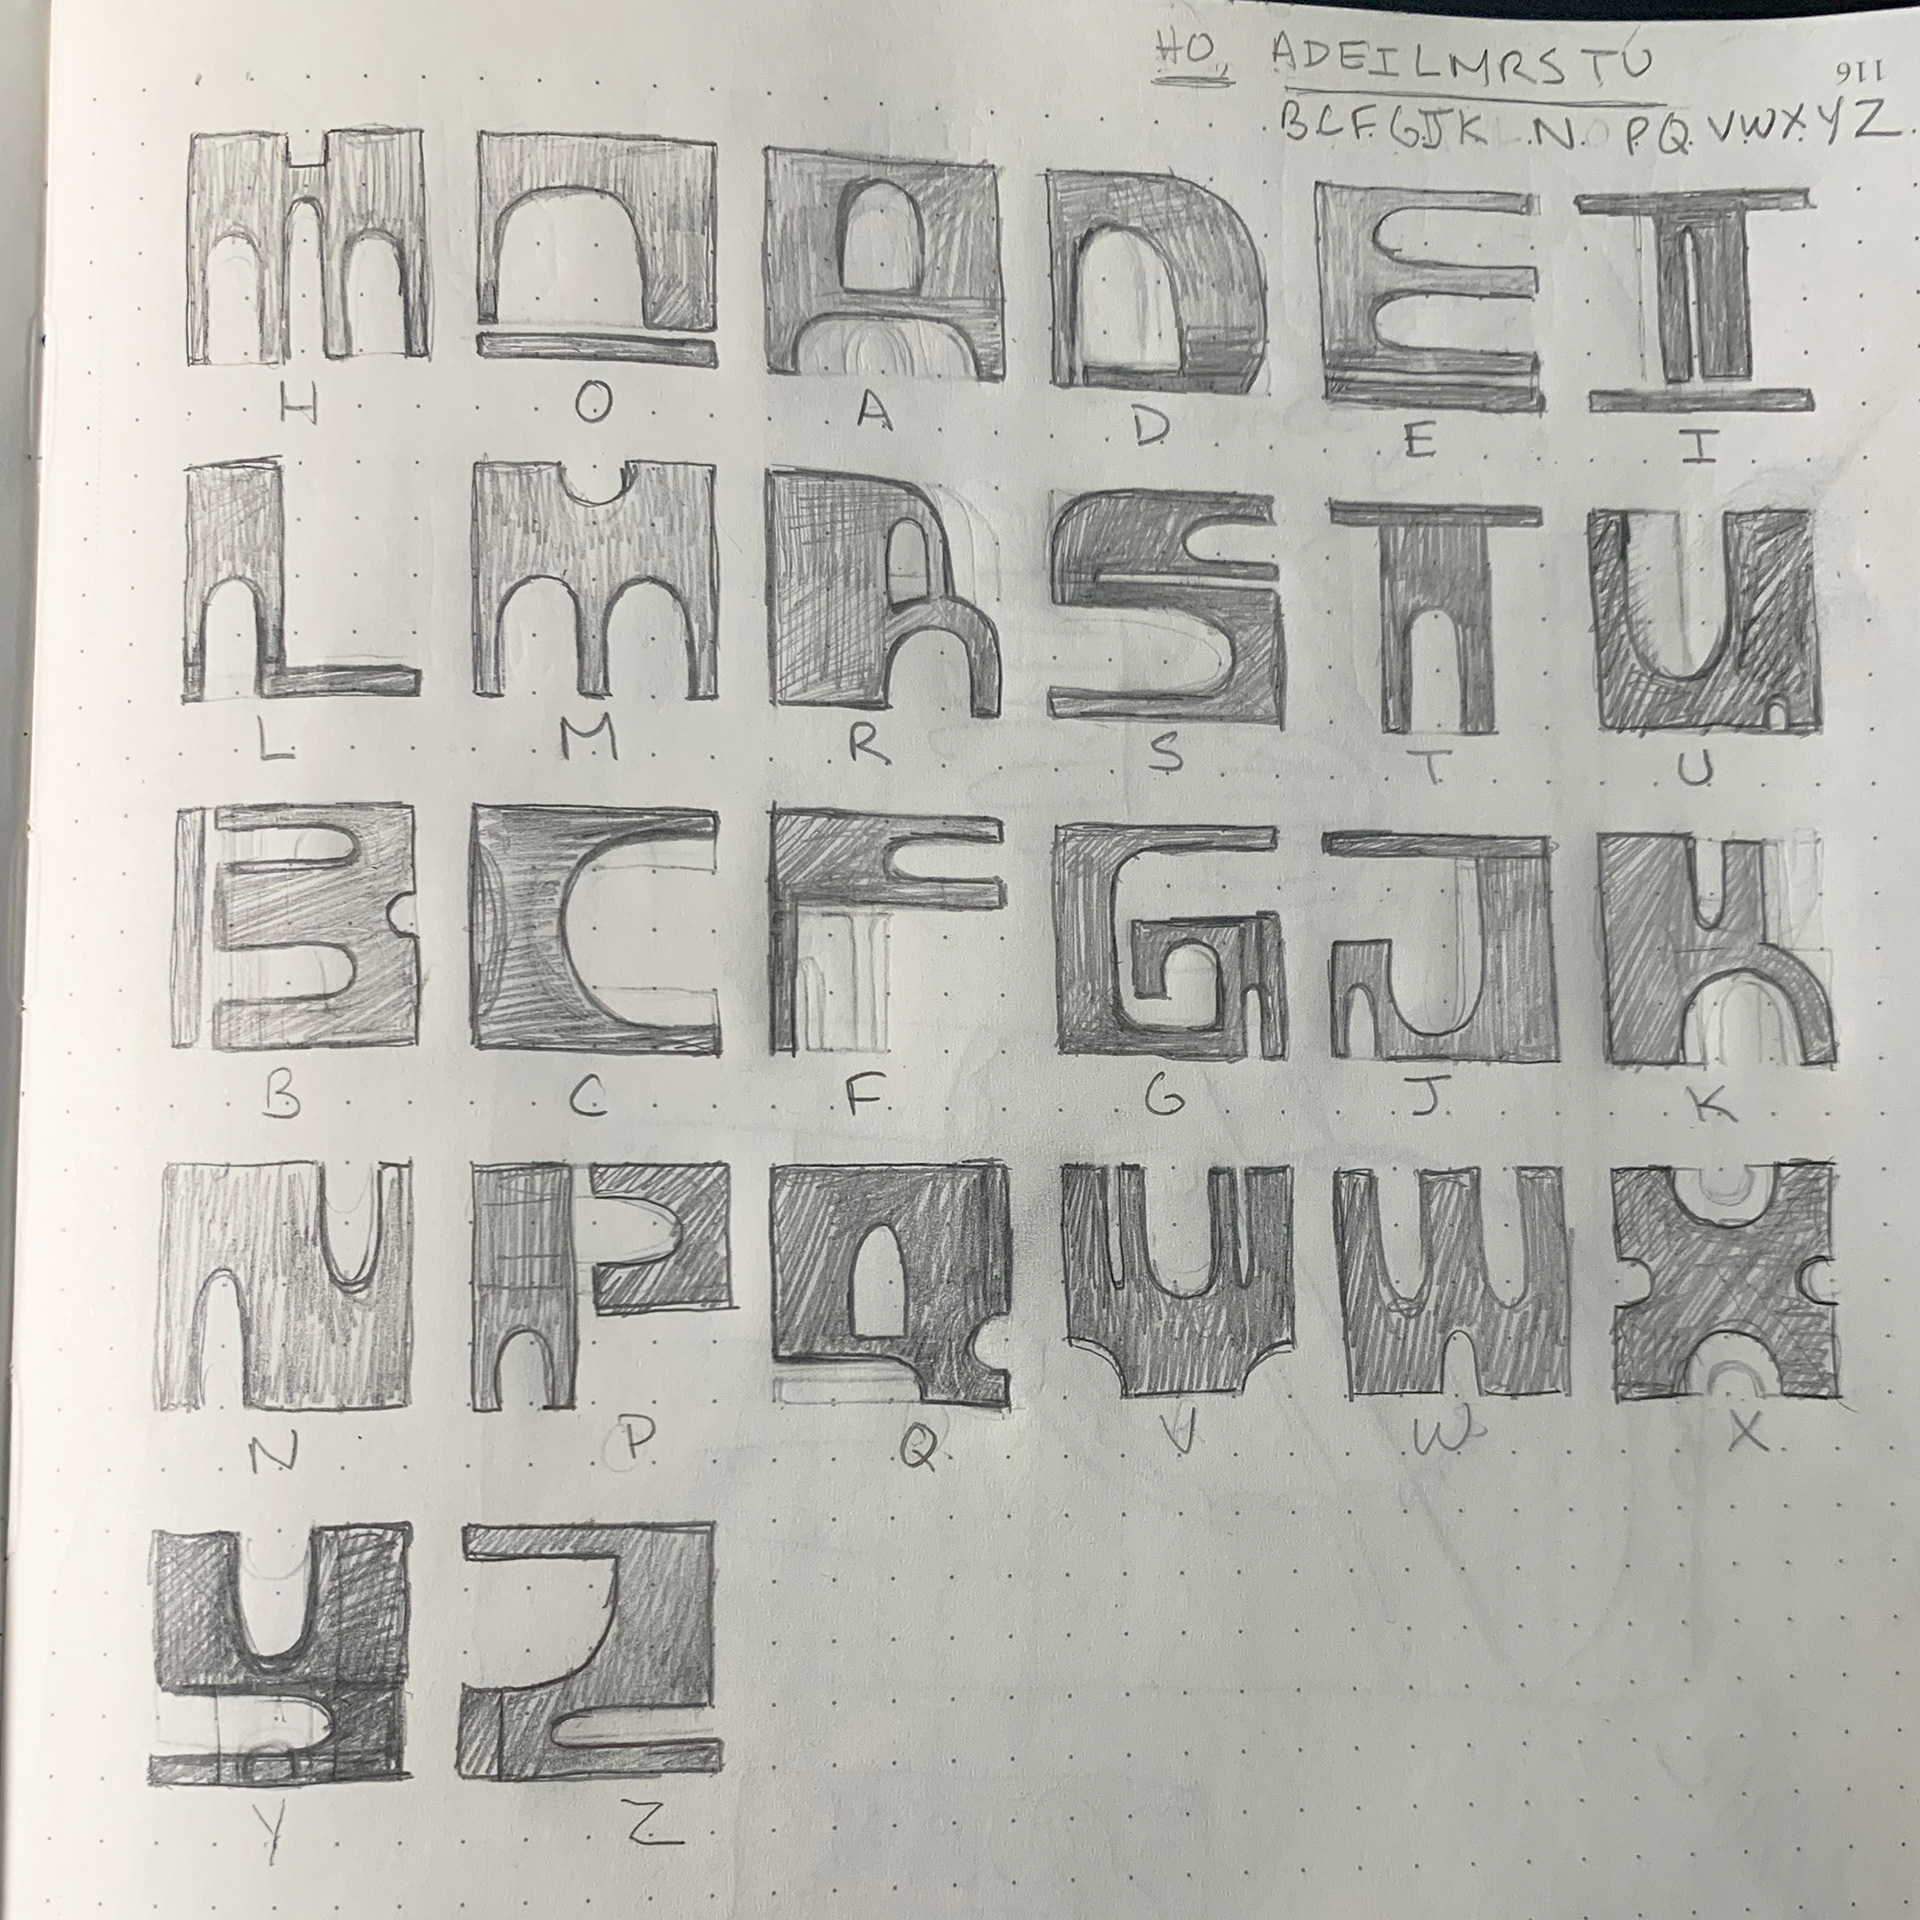 HO, ADEILMRSTU
116
BCFGJK N PQ VWXYZ
H O A D E I
L M R S T U
B C F G J K
N P Q V W X
Y Z